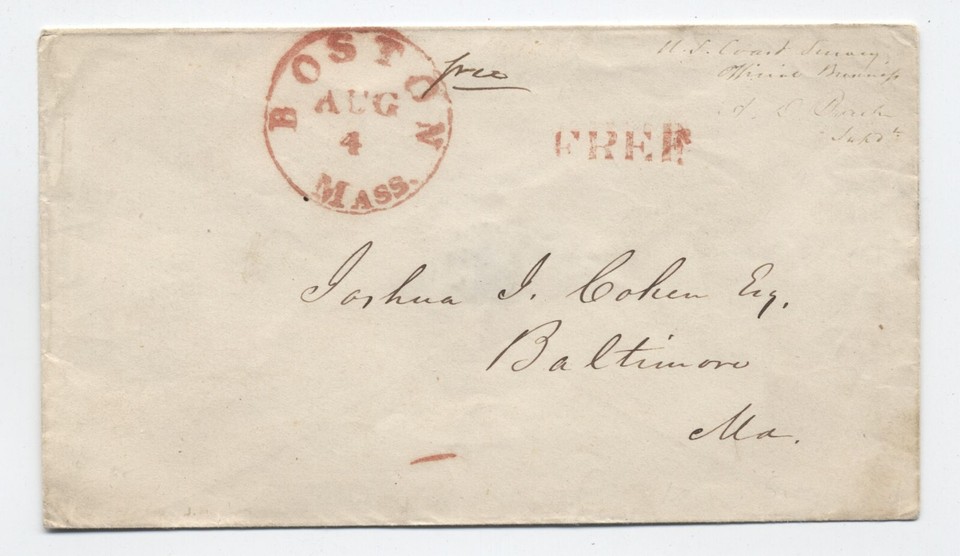 BOSTON
AUG
4
MASS.
free
FREE
U.S. Coast Survey,
Official Business
A. D. Bache
Supdt.
Joshua I. Cohen Esq.
Baltimore
Md.